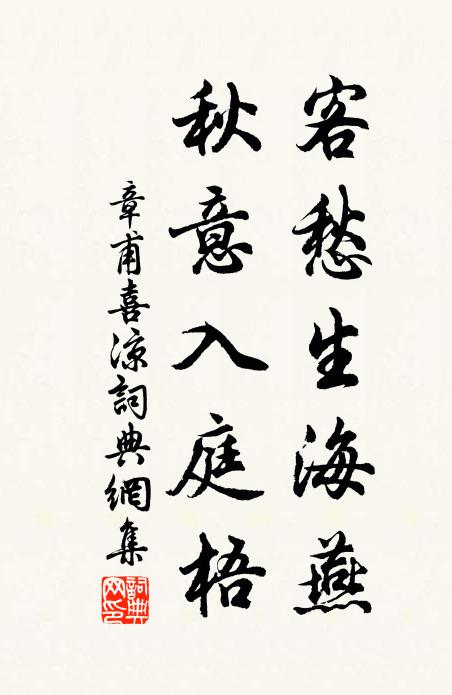 客愁生海燕
秋意入庭梧
章甫喜涼詞典網集
詞典網印